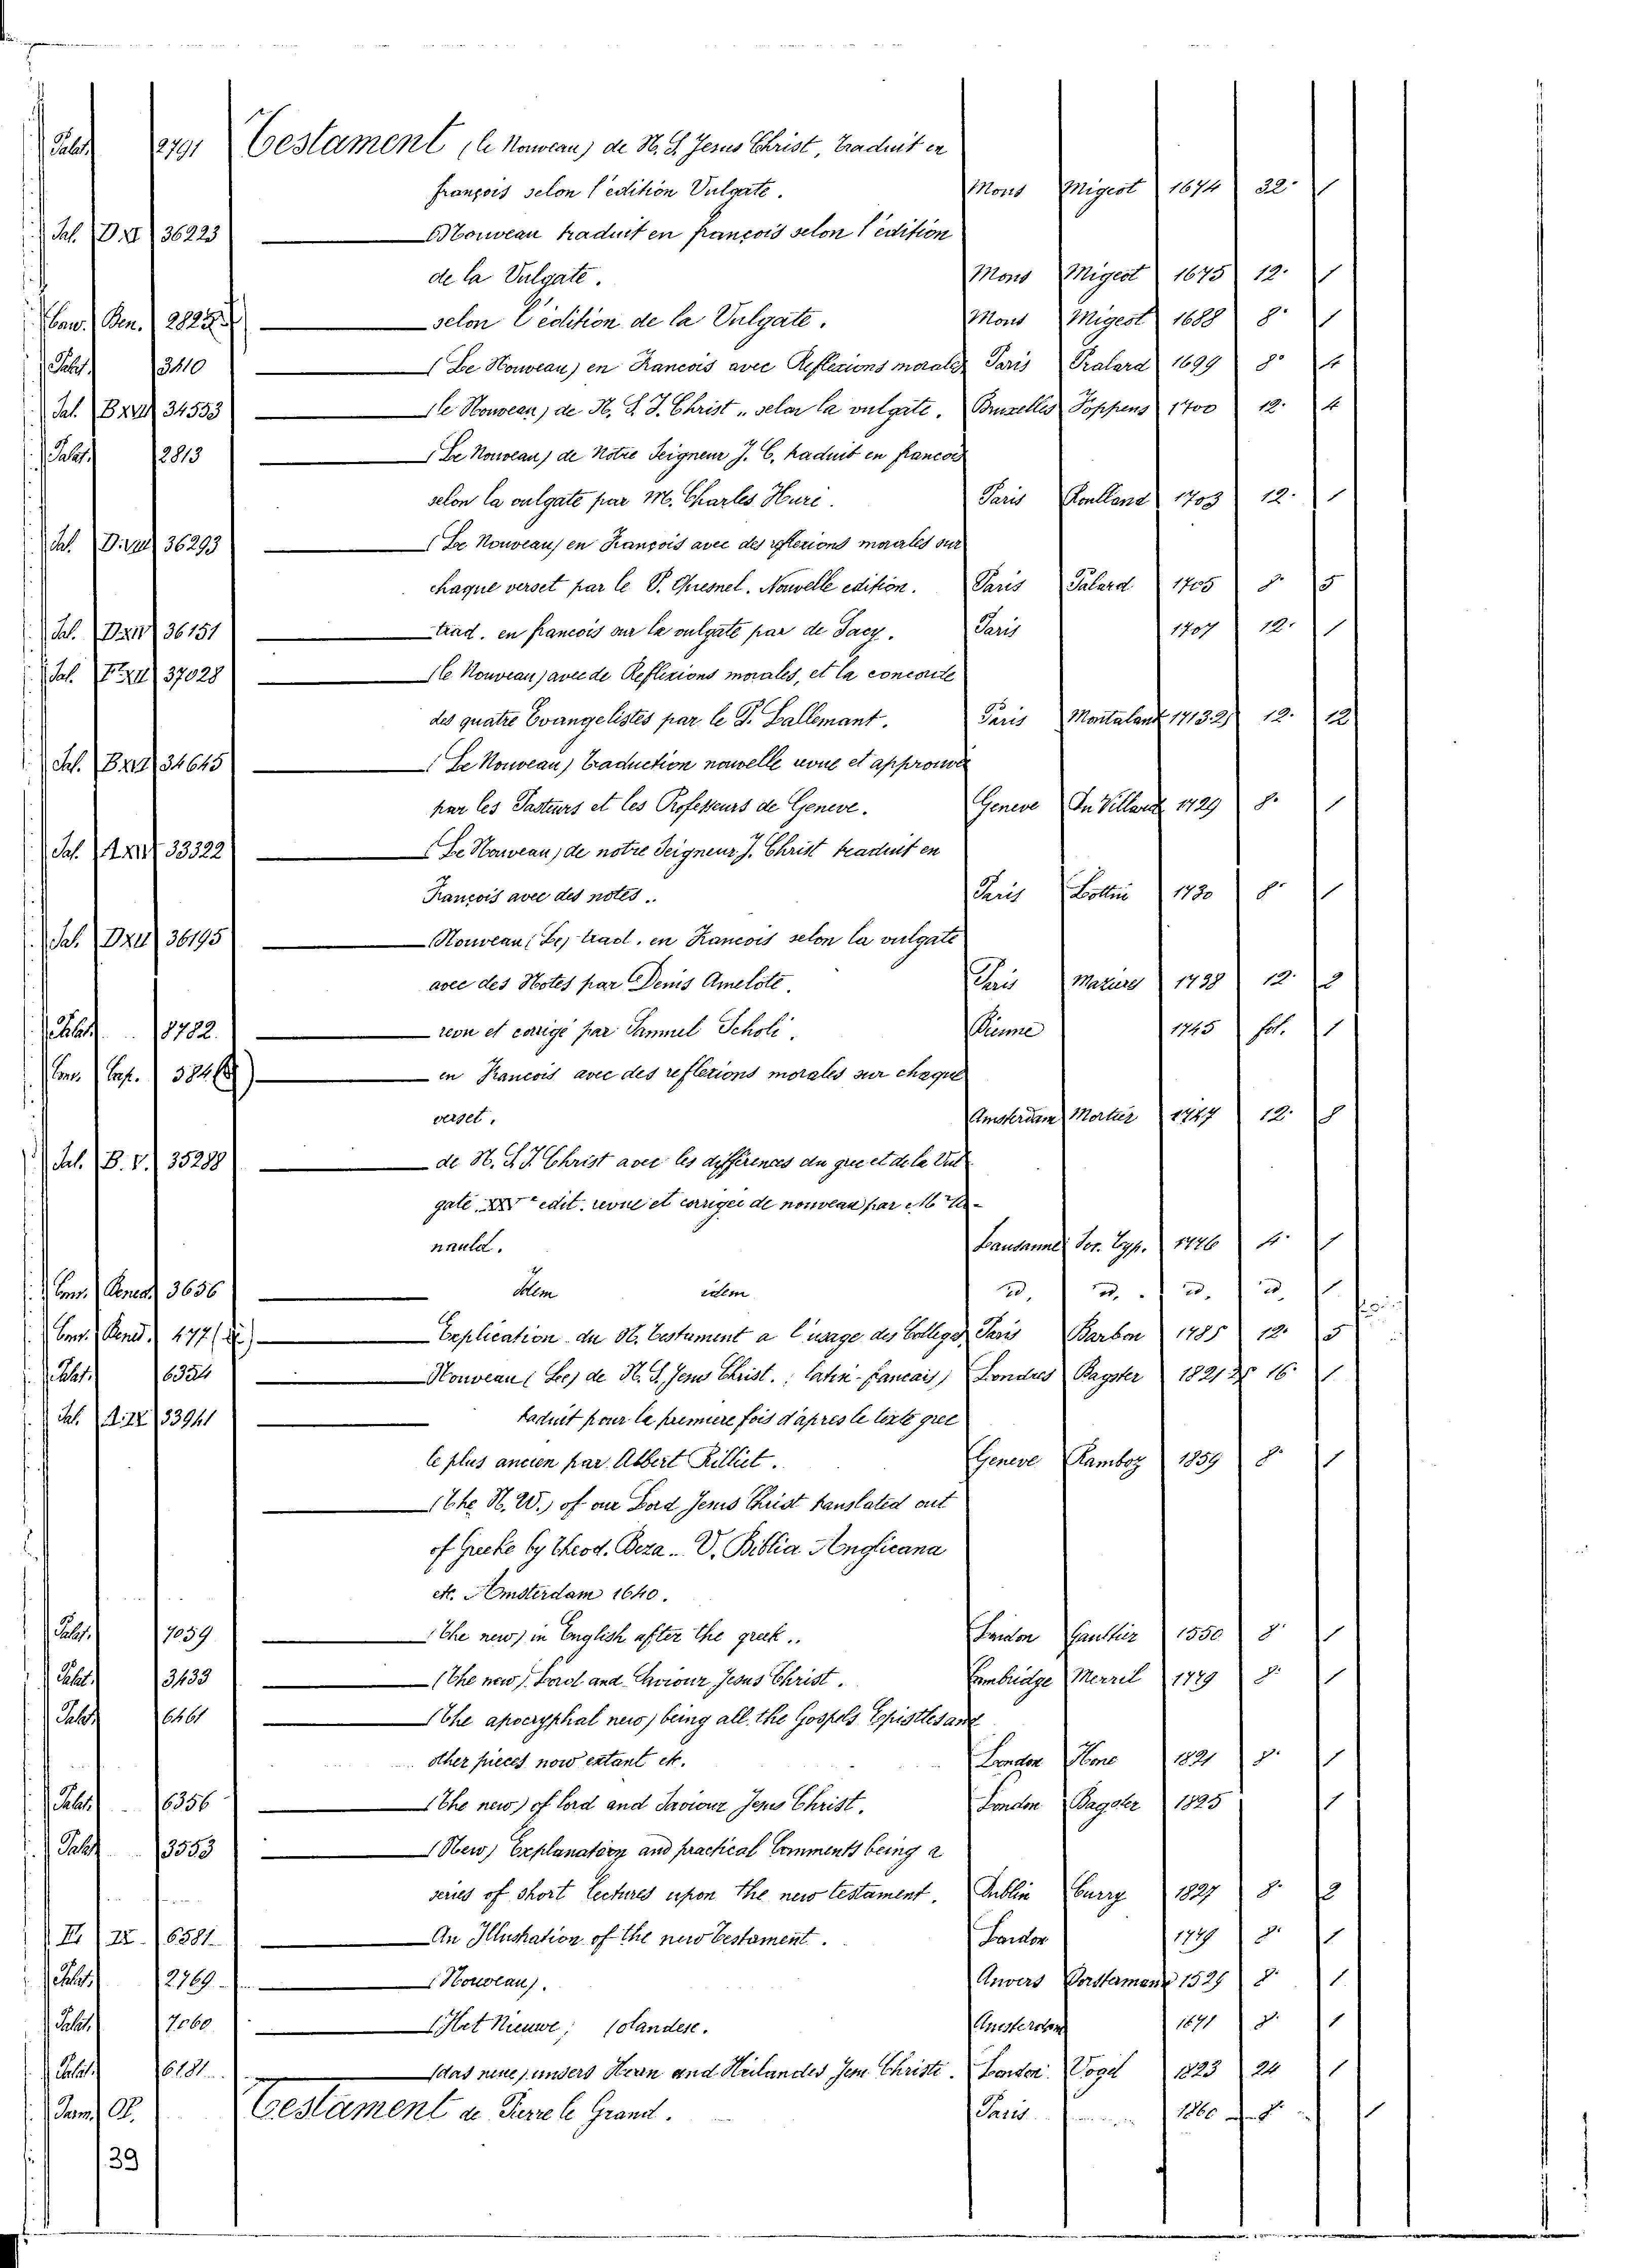 Palat. 2791 Testament (le Nouveau) de N. S. Jesus Christ, Traduit en
françois selon l'edition Vulgate. Mons Migeot 1674 32° 1
Sal. D. XI 36223 — Nouveau traduit en françois selon l'edition
de la Vulgate. Mons Migeot 1675 12° 1
Conv. Ben. — selon l'edition de la Vulgate. Mons Migeot 1688 8° 1
Palat. 3410 — (Le Nouveau) en Francois avec Reflexions morales Paris Pralard 1699 8° 4
Sal. 34553 — (le Nouveau) de N. S. J. Christ selon la vulgate. Bruxelles Foppens 1700 12° 4
Palat. 2813 — (Le Nouveau) de Notre Seigneur J. C. traduit en francois
selon la vulgate par M. Charles Huré. Paris Roulland 1703 12° 1
Sal. 36293 — (Le Nouveau) en François avec des reflexions morales sur
chaque verset par le P. Quesnel. Nouvelle edition. Paris Palard 1705 8° 5
Sal. 36151 — trad. en francois sur la vulgate par de Sacy. Paris 1707 12° 1
Sal. 37028 — (le Nouveau) avec de Reflexions morales, et la concorde
des quatre Evangelistes par le P. Lallemant. Paris Montalant 1713.25 12° 12
Sal. 34645 — (Le Nouveau) Traduction nouvelle revue et approuvée
par les Pasteurs et les Professeurs de Geneve. Geneve 1729 8° 1
Sal. 33322 — (Le Nouveau) de notre Seigneur J. Christ traduit en
François avec des notes. Paris Lottin 1730 8° 1
Sal. DXII 36195 — Nouveau (Le) trad. en Francois selon la vulgate
avec des Notes par Denis Amelote. Paris 1738 12° 2
Palat. 8782 — revu et corrigé par Samuel Scholi. Bienne 1745 fol. 1
Conv. Cap. — en Francois avec des reflexions morales sur chaque
verset. Amsterdam Mortier 1747 12° 8
Sal. B. V. 35288 — de N. S. J. Christ avec les différences du grec et de la Vul
gate edit. revue et corrigée de nouveau par M
nauld. Lausanne Soc. Typ. 1776 4° 1
Conv. Bened. 3656 — Idem idem id. id. id. id. 1
Conv. Bened. 477 — Explication du N. Testament a l'usage des Colleges Paris Barbon 1785 12° 5
Palat. 6354 — Nouveau (Le) de N. S. Jesus Christ. (latin-francais) Londres Bagster 1821 16° 1
Sal. 33941 — traduit pour la premiere fois d'apres le texte grec
le plus ancien par Albert Rilliet. Geneve Ramboz 1859 8° 1
— (The N. W.) of our Lord Jesus Christ translated out
of Greeke by Theod. Beza .. V. Biblia Anglicana
etc. Amsterdam 1640.
Palat. 7059 — (The new) in English after the greek .. London Gaultier 1550 8° 1
Palat. 3433 — (The new). Lord and Saviour Jesus Christ. Cambridge Merril 1779 8° 1
Palat. 6461 — (The apocryphal new) being all the Gospels Epistles and
other pieces now extant etc. London Hone 1821 8° 1
Palat. 6356 — (The new) of lord and Saviour Jesus Christ. London Bagster 1825 1
Palat. 3553 — (New) Explanatory and practical Comments being a
series of short lectures upon the new testament. Dublin Curry 1827 8° 2
6581 — An Illustration of the new testament. London 1749 8° 1
Palat. 2769 — (Nouveau). Anvers Vorsterman 1529 8° 1
Palat. 7060 — (Het Nieuwe; (olandese. Amsterdam 1691 8° 1
Palat. 6181 — (das neue) unsers Herrn und Heilandes Jesu Christi. London Vogel 1823 24 1
Testament de Pierre le Grand. Paris 1860 8° 1
39